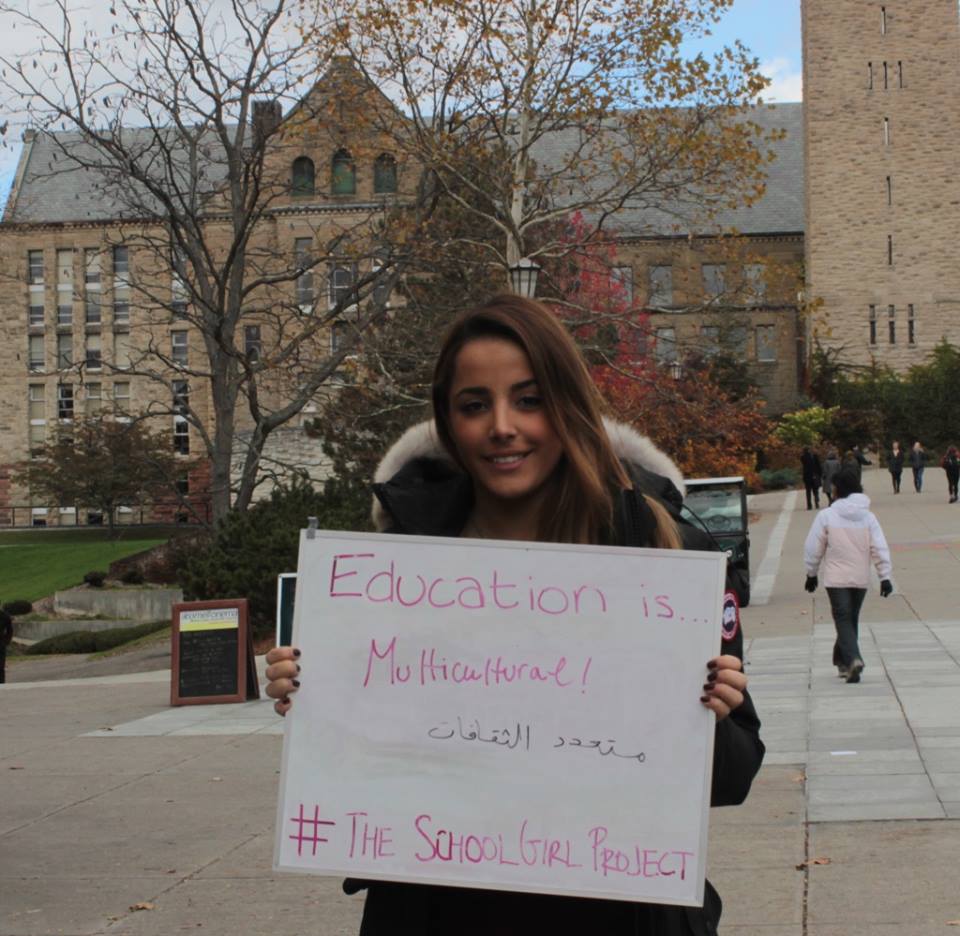 Education is...
Multicultural!
متعدد الثقافات
# THE SCHOOLGIRL PROJECT
cornellcinema